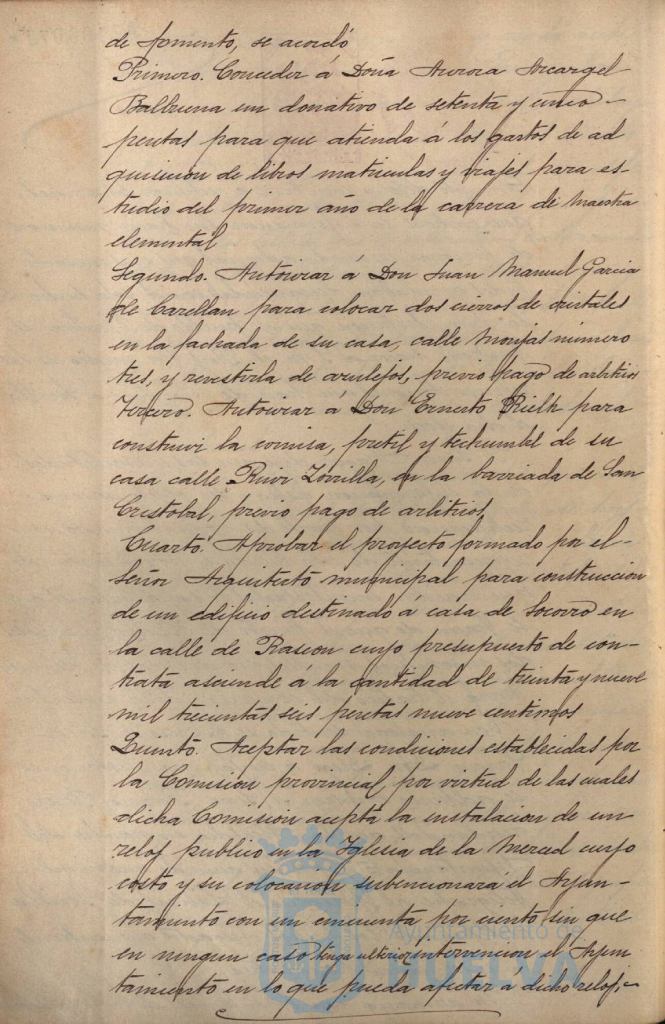 de fomento, se acordó
Primero. Conceder á Doña Aurora Arcangel
Balbuena un donativo de setenta y cinco-
pesetas para que atienda á los gastos de ad
quisicion de libros matriculas y viajes para es-
tudio del primer año de la carrera de Maestra
elemental
Segundo. Autorizar á Don Juan Manuel Garcia
de Carellan para colocar dos cierros de cristales
en la fachada de su casa, calle Monjas número
tres, y revestirla de azulejos, previo pago de arbitrios
Tercero. Autorizar á Don Ernesto para
construir la cornisa, pretil y techumbre de su
casa calle Ruiz Zorrilla, en la barriada de San
Cristobal, previo pago de arbitrios
Cuarto. Aprobar el proyecto formado por el-
Señor Arquitecto municipal para construccion
de un edificio destinado á casa de Socorro en
la calle de Rascon cuyo presupuesto de con-
trata asciende á la cantidad de treinta y nueve
mil trecientas seis pesetas nueve centimos
Quinto. Aceptar las condiciones establecidas por
la Comision provincial, por virtud de las cuales
dicha Comision acepta la instalacion de un
reloj publico en la Iglesia de la Merced cuyo
costo y su colocacion subencionará el Ayun-
tamiento con un cincuenta por ciento, sin que
en ningun caso tenga ulterior intervencion el Ayun
tamiento en lo que pueda afectar á dicho reloj.-
Ayuntamiento de
HUELVA